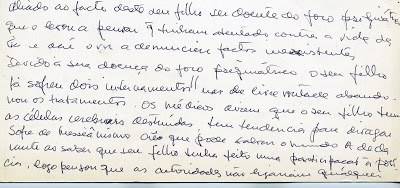 aliado ao facto deste seu filho ser doente do foro psiquiátri
que o levou a pensar q tinham atentado contra a vida de
te e daí vir a denunciar factos inexistentes
Devido à sua doença do foro psiquiátrico o seu filho
já sofreu dois internamentos mas de livre vontade abando-
nou os tratamentos. Os médicos dizem que o seu filho tem
as células cerebrais destruídas, tem tendência para divagar
Sofre de messianismo crê que pode salvar o mundo. A decla
rante ao saber que seu filho tinha feito uma participação à polí
cia, logo pensou que as autoridades não ligariam qualquer